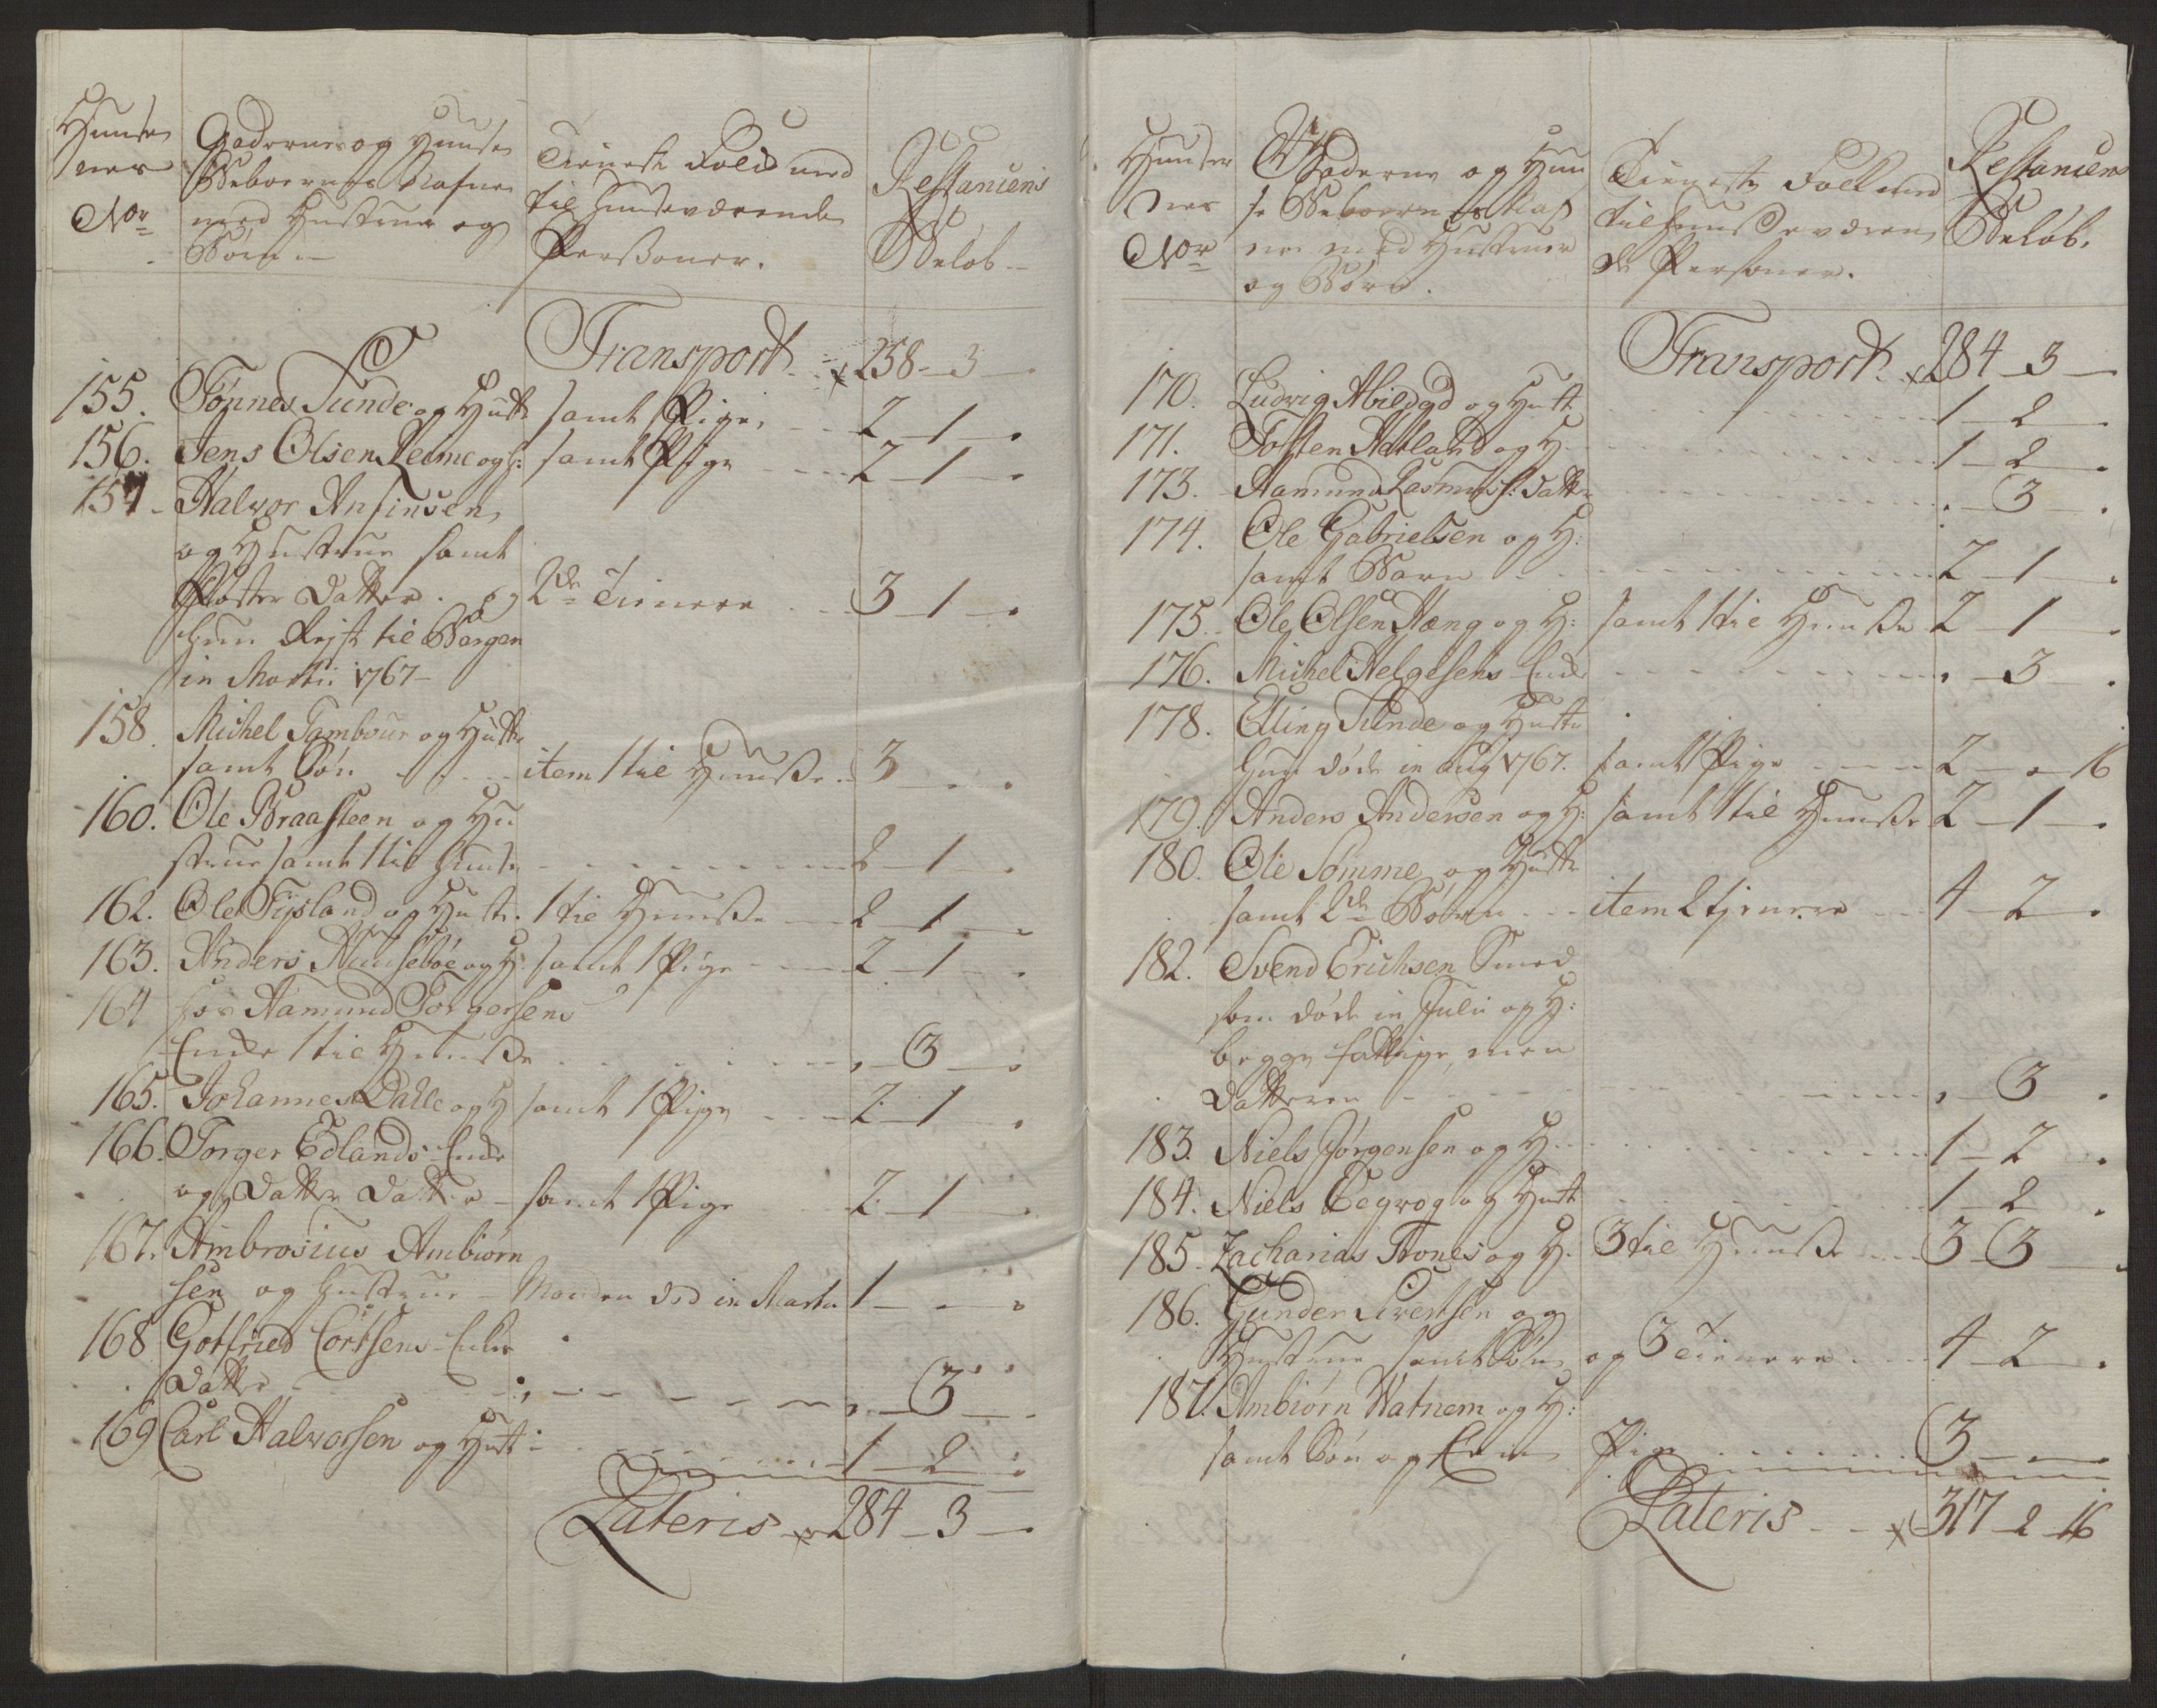 Huuse
nes
No:
Gaderne og Huuse
Beboernes Nafne
med Hustruer og
Børn
Tieneste Folck med
til Huuseværende
Persohner.
Restancens
Beløb
Transport 258 - 3 -
155. Tønnes Sunde og Hustr samt Pige, 2 - 1 -
156. Jens Olsen Reime og H: samt Pige 2 - 1 -
157. Halvor Ansinsen
og Hustrue samt
Pløster Datter. og 2de Tienere 3 - 1 -
hun Rejst til Bergen
in Martii 1767
158. Michel Tambour og Hustr
samt Søn item 1 til Huuse 3 - -
160. Ole Braasteen og Hu
strue samt 1 til Huuse 2 - 1 -
162. Ole Fijsland og Hustr. 1 til Huuse 2 - 1 -
163. Anders Huusebøe og H. samt 1 Pige 2 - 1 -
164 hos Aamund Torgersens
Enke 1 til Huuse - 3 -
165. Johannes Dahle og H samt 1 Pige 2 - 1 -
166. Torger Edlands Enke
og Datter Datter samt 1 Pige 2 - 1 -
167. Ambrosius Ambiørn
sen og Hustrue - Manden død in Martii 1 - -
168 Gotfried Cortsens Enke
Datter - 3 -
169 Carl Halvorsen og Hust: 1 - 2 -
Lateris 284 - 3 -
Huuse
nes
No:
Gaderne og Huu
se Beboernes Naf
ne med Hustruer
og Børn.
Tieneste Folck med
til Huuse væren
de Personer.
Restancens
Beløb.
Transport 284 - 3 -
170. Ludvig Abildgd og Hustr 1 - 2 -
171. Tosten Hatland og H 1 - 2 -
173. Aamund Rasmus: Datter - 3 -
174. Ole Gabrielsen og H:
samt Barn 2 - 1 -
175. Ole Olsen Hæng og H: samt 1 til Huuse 2 - 1 -
176. Michel Helgesens Enke - 3 -
178. Elling Sunde og Hustr
hun døde in Aug 1767. samt 1 Pige 2 - - 16
179. Anders Andersen og H: samt 1 til Huuse 2 - 1 -
180. Ole Somme og Hustr
samt 2de Børn item 2 tienere 4 - 2 -
182. Svend Erichsen Smed
som døde in Julii og H:
begge fattige, men
Datteren - 3 -
183. Niels Jørgensen og H 1 - 2 -
184. Niels Eegrog og Hustr 1 - 2 -
185. Zacharias Trones og H. 3 til Huuse 3 - 3 -
186. Gunder Sivertsen og
Hustrue samt Søn og 3 Tienere 4 - 2 -
187. Ambiørn Watnem og H:
samt Søn og Een Pige 3 - -
Lateris 317 - 2 - 16